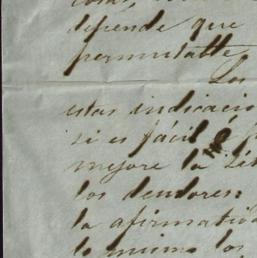 depende que
permutable
Los
estas indicacio
si es fácil ó
mejore la
los deudores
la afirmativ
lo mismo los